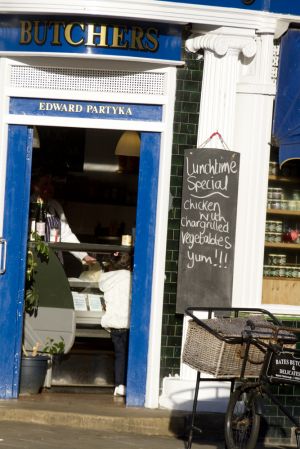 BUTCHERS
EDWARD PARTYKA
Lunchtime
Special
Chicken
with
chargrilled
vegetables
yum!!!
BATES BUTCH
& DELICATES